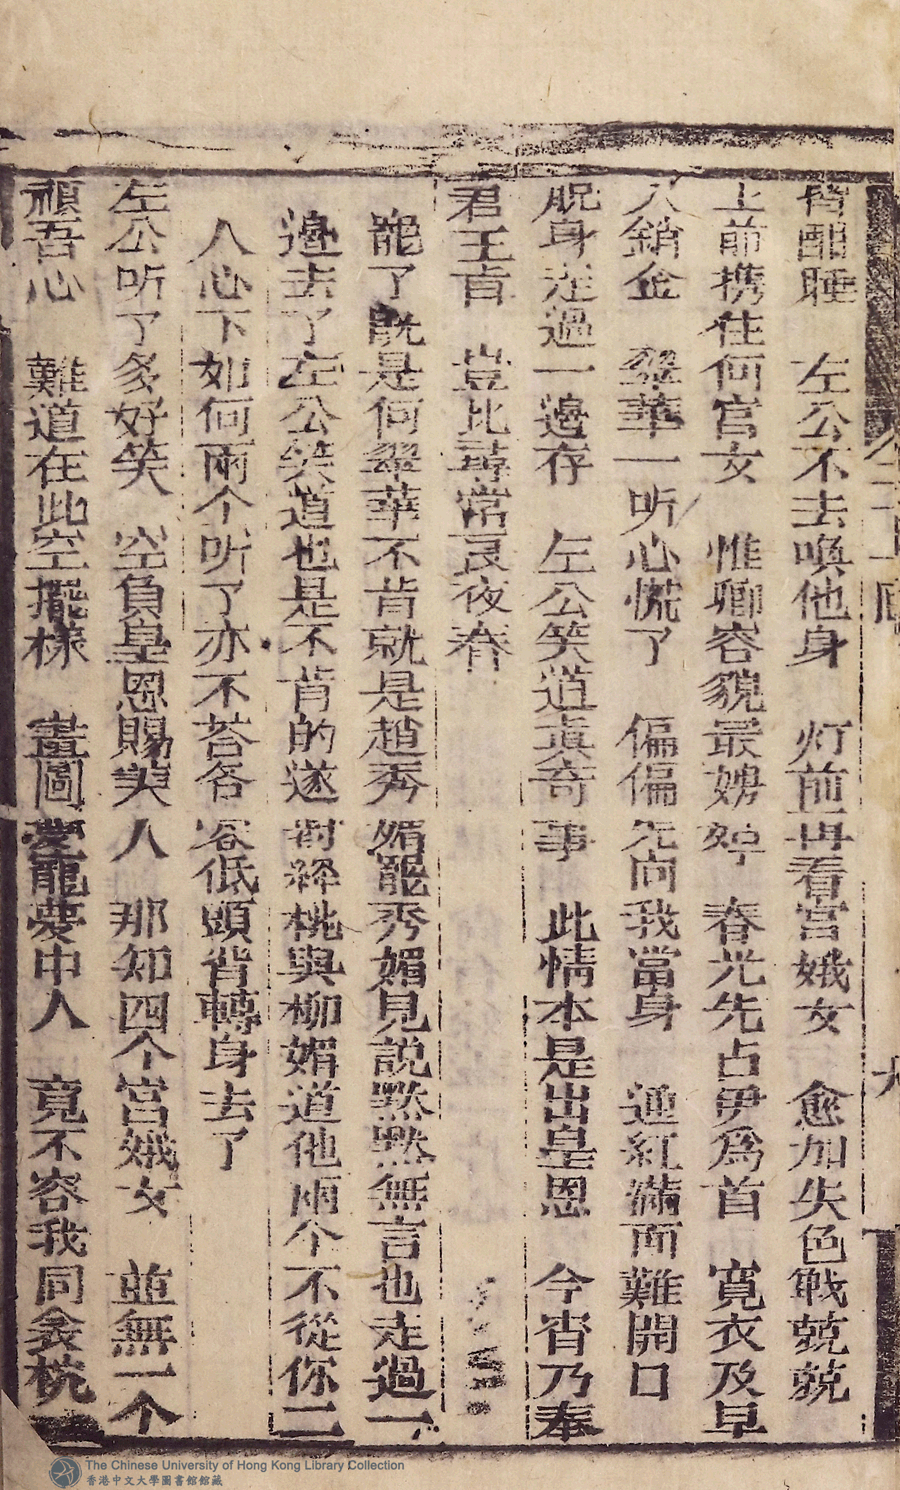 酣睡　左公不去喚他身　灯前再看宮娥女　愈加失色戰兢兢
上前携住何宮女　惟卿容貌最娉婷　春光先占尹爲首　寬衣及早
入銷金　翠華一听心慌了　偏偏先向我當身　通紅滿面難開口
脫身走過一邊存　左公笑道真奇事　此情本是出皇恩　今宵乃奉
君王旨　豈比尋常良夜春
罷了既是何翠華不肯就是趙秀媚罷秀媚見說默默無言也走過一
邊去了左公笑道也是不肯的遂對絳桃與柳媚道他兩个不從你二
人心下如何兩个听了亦不荅各低頭背轉身去了
左公听了多好笑　空負皇恩賜美人　那知四个宮娥女　並無一个
順吾心　難道在此空擺樣　畫圖愛寵夢中人　竟不容我同衾枕
The Chinese University of Hong Kong Library Collection
香港中文大學圖書館館藏